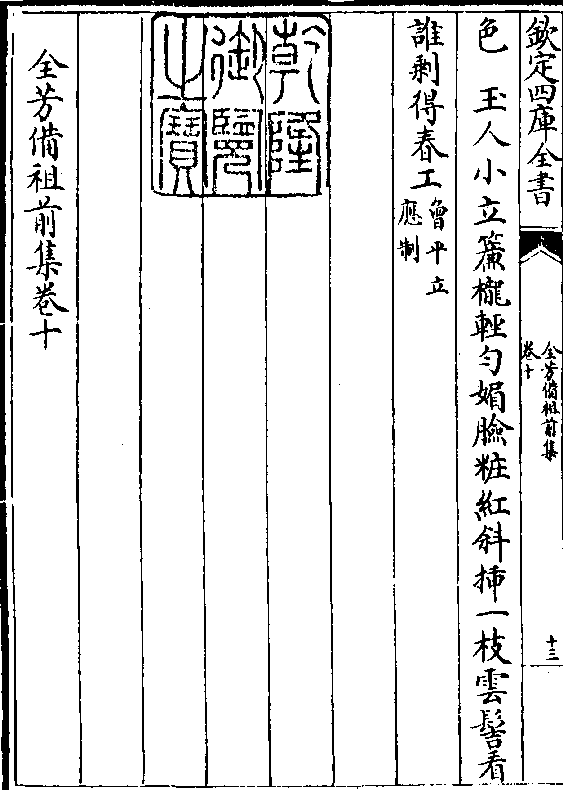 欽定四庫全書
全芳備祖前集
卷十
十三
色　玉人小立簾櫳輕勻媚臉粧紅斜揷一枝雲髻看
誰剩得春工曾平立
應制
乾隆
御覽
之寶
全芳備祖前集卷十